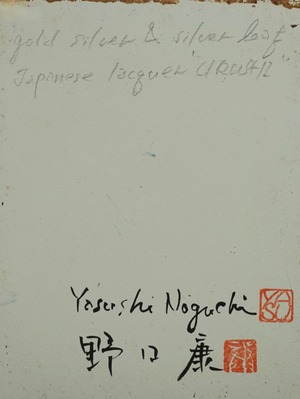 gold silver & silver leaf
Japanese lacquer "URUSHI"
Yasushi Noguchi YASU
野口 康 康